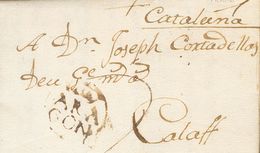 Cataluña
A Dn. Joseph Cortadellas
Deu Ge. mds.
ARA
GON
Calaff